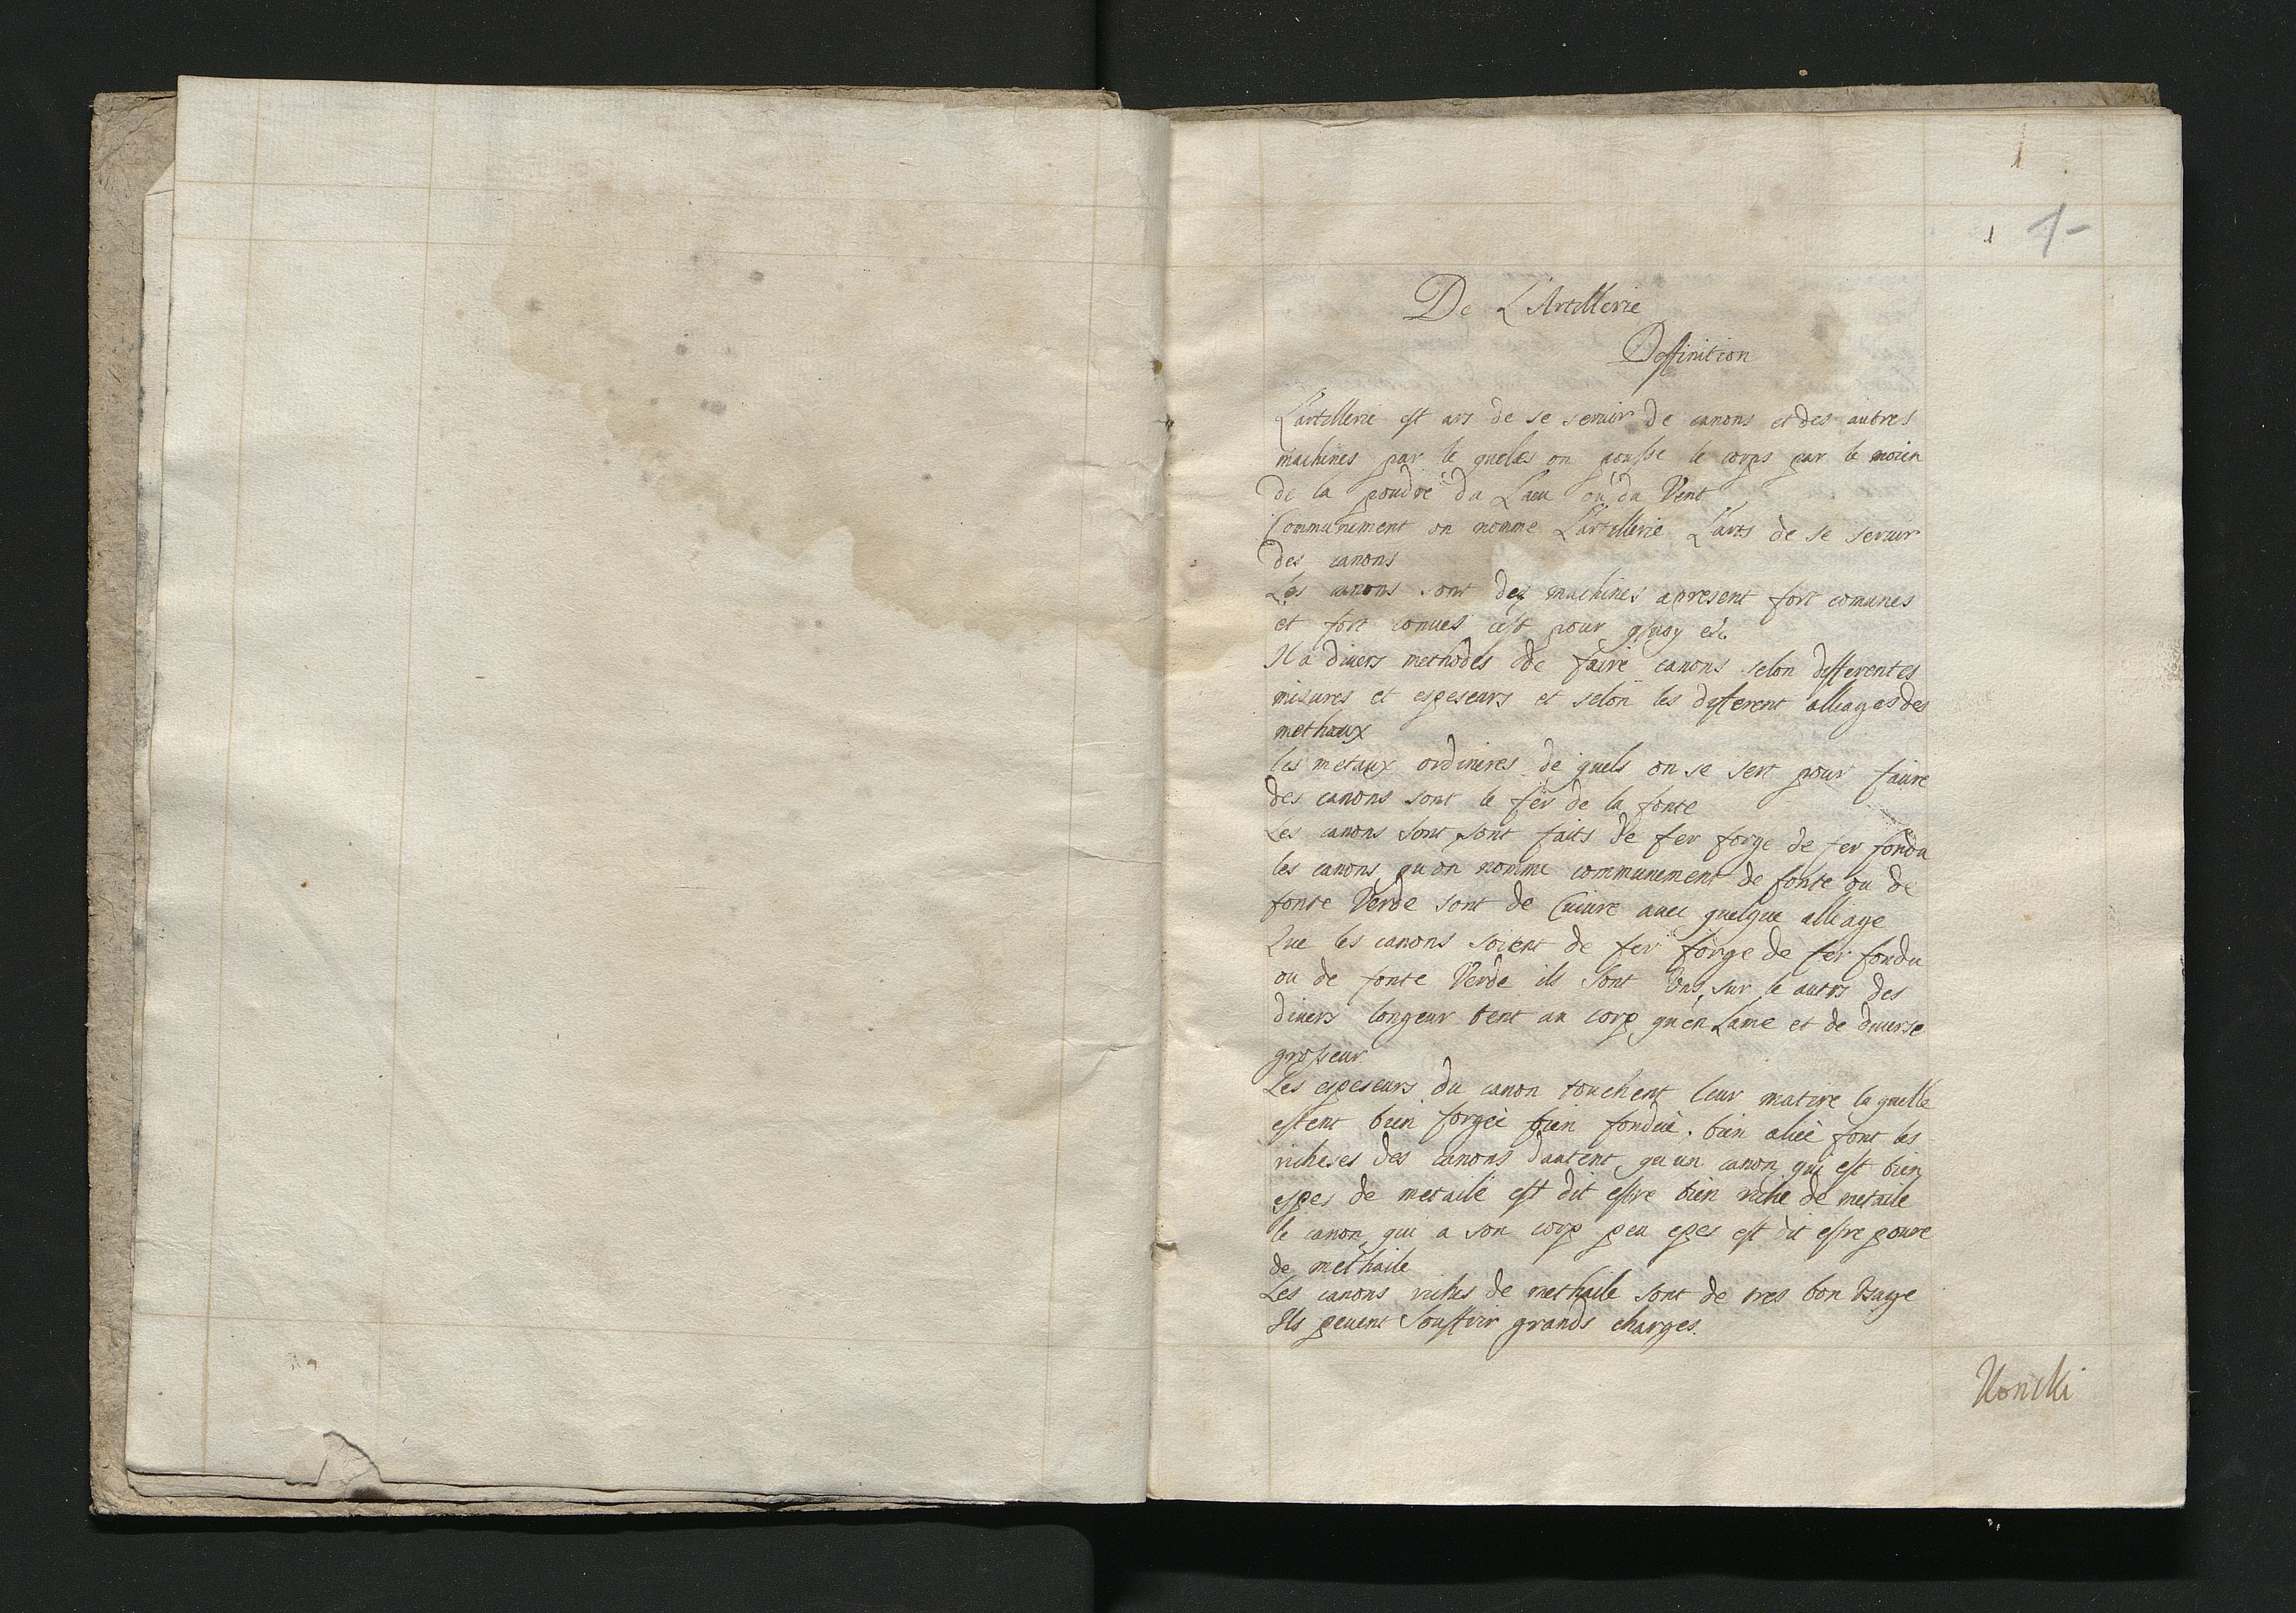 1
1 1-
De L'Artillerie
Deffinition
L'artillerie est ars de se seruir de canons et des autres
machines par le queles on pousse le corps par le moien
de la poudre du L'aeu ou du Vent
Communement on nomme L'artillerie L'arts de se seruir
des canons
Les canons sont des machines apresent fort comunes
et fort conues cest pour quoy etc
Il a diuers methodes de faire canons selon differentes
misures et espeseurs et selon les different alliages des
methaux
les metaux ordinires de quels on se sert pour faire
des canons sont le fer de la fonte
Les canons sont sont faits de fer forge de fer fondu
les canons qu on nomme communement de fonte ou de
fonte Verde sont de Cuiure auec quelque alliage
Que les canons soient de fer forge de fer fondu
ou de fonte Verde ils sont Uns sur le autrs des
diuers longeur tent au corp qu'en Lame et de diuerse
grosseur
Les espeseurs du canon touchent leur matire la quelle
estent bien forgée bien fondue. bien aliée font les
richeses des canons dautent qu un canon qui est bien
espes de metaile est dit estre bien riche de metaile
le canon qui a son corp peu epes est dit estre poure
de methaile
Les canons riches de methaile sont de tres bon Usage
Ils peuent souffrir grands charges.